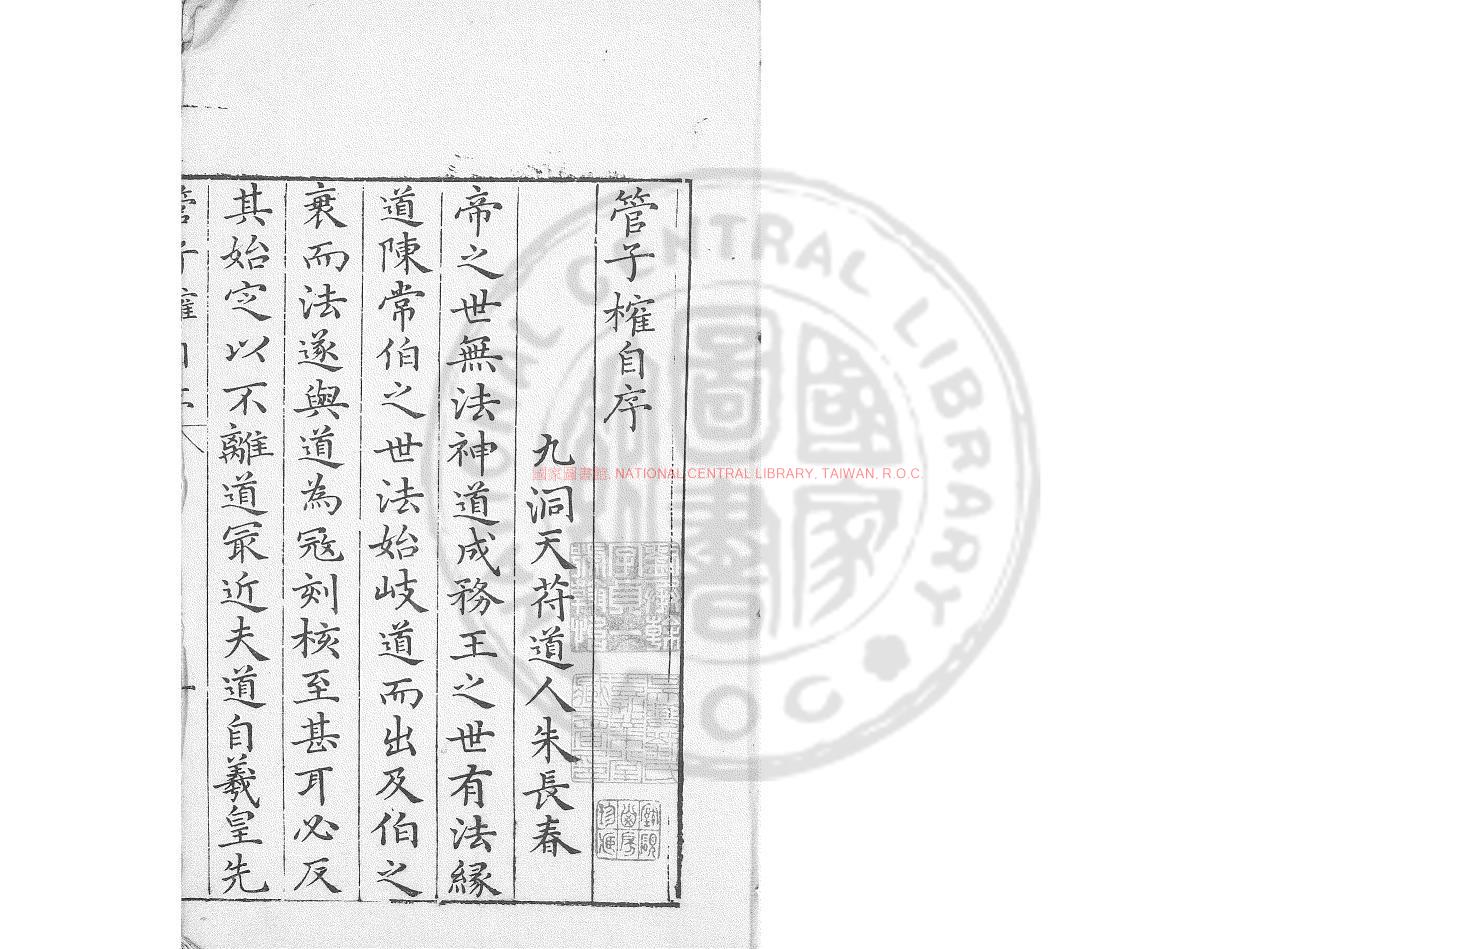 管子榷自序
九洞天荷道人朱長春
帝之世無法神道成務王之世有法緣
道陳常伯之世法始岐道而出及伯之
衰而法遂與道為冦刻核至甚耳必反
其始定以不離道冣近夫道自羲皇先
管子榷自序
國家圖書館, NATIONAL CENTRAL LIBRARY, TAIWAN, R.O.C.
NATIONAL CENTRAL LIBRARY
國家圖書館
ROC